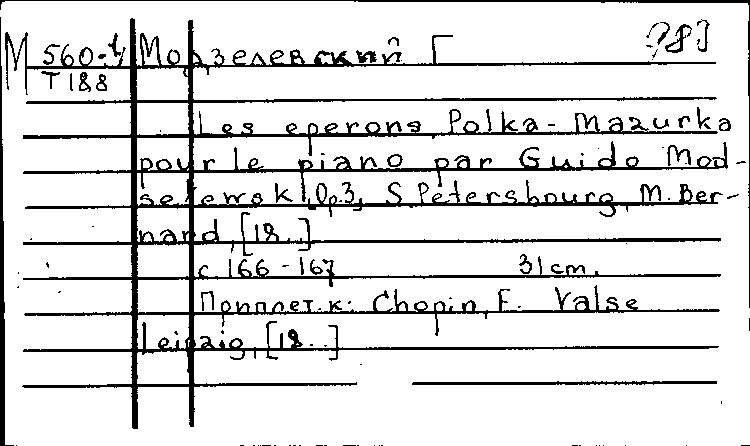 М 560-4/ Модзелевский Г 983
Т 188
Les eperons, Polka-Mazurka
pour le piano par Guido Mod-
selewski, Op.3, S. Petersbourg, M. Ber-
nard, [18..]
с. 166-167 31 cm.
Приплет. к: Chopin, F. Valse
Leipzig, [18..]